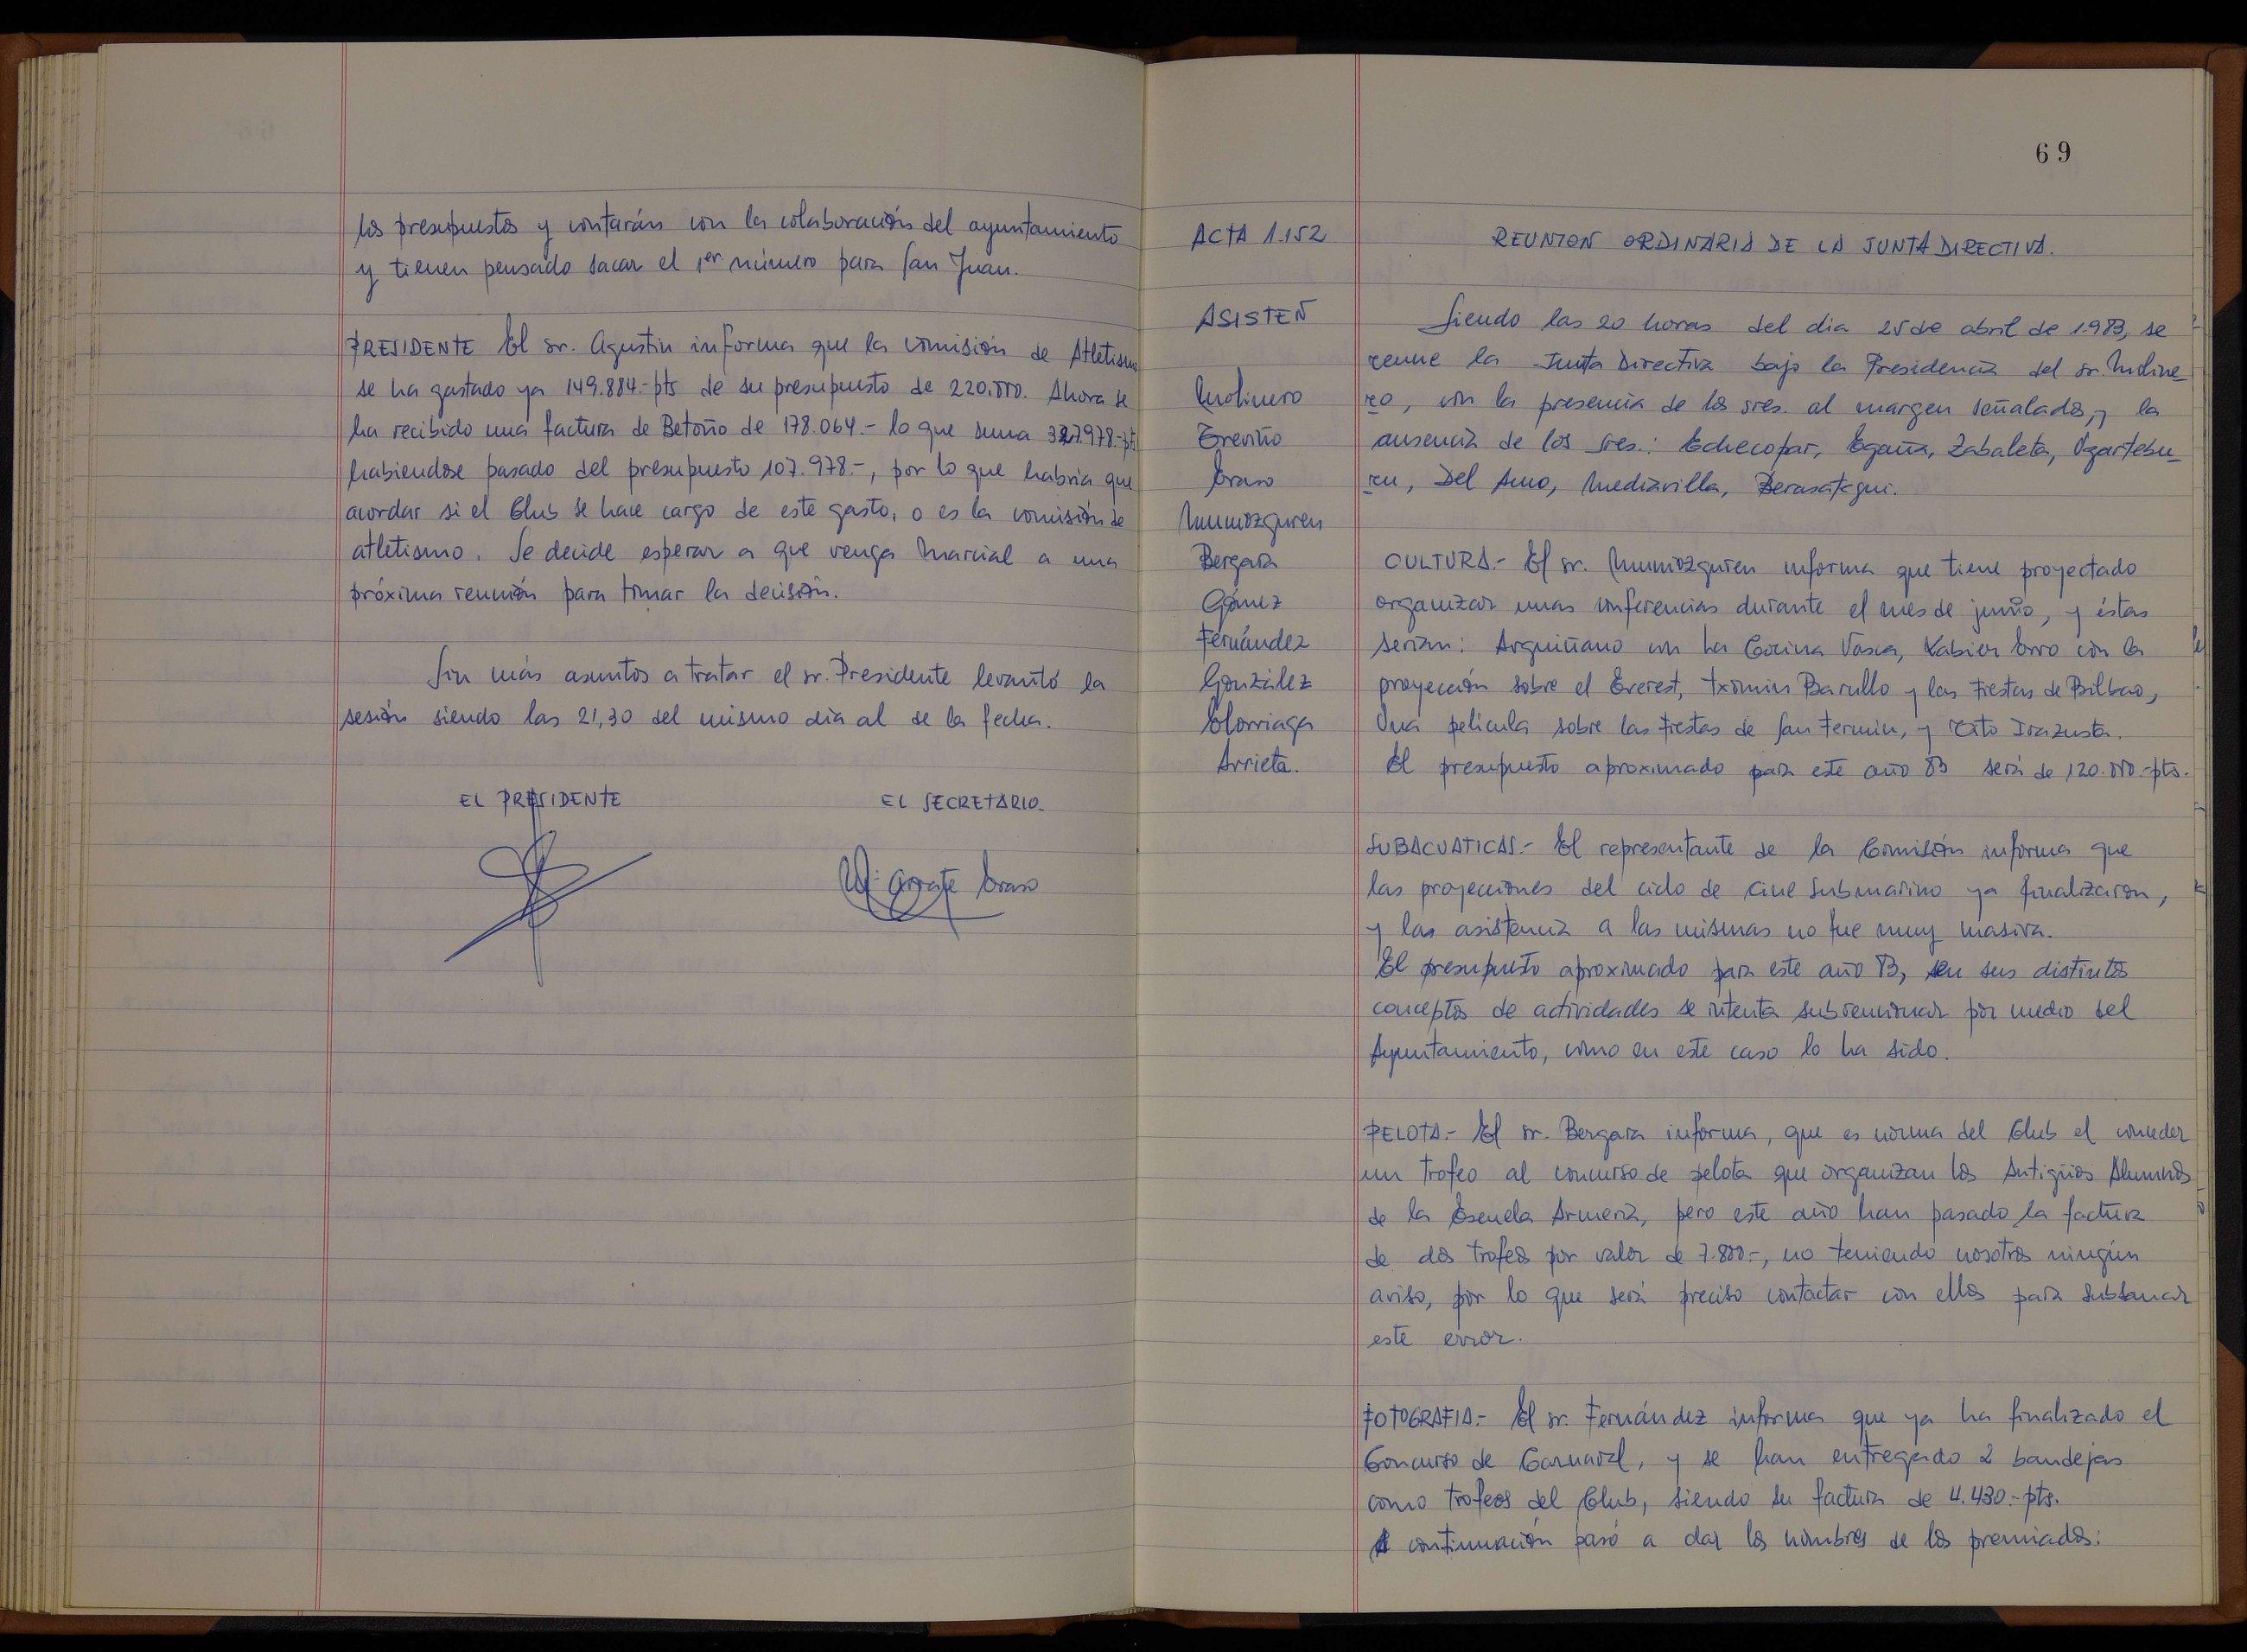 los presupuestos y contarán con la colaboración del ayuntamiento
y tienen pensado sacar el 1er número para San Juan.
PRESIDENTE El sr. Agustin informa que la comisión de Atletismo
se ha gastado ya 149.884.-pts de su presupuesto de 220.000. Ahora se
ha recibido una factura de Betoño de 178.064.- lo que suma 327.978.-pts
habiendose pasado del presupuesto 107.978.-, por lo que habria que
acordar si el Club se hace cargo de este gasto, o es la comisión de
atletismo. Se decide esperar a que venga Marcial a una
próxima reunión para tomar la decisión.
Sin más asuntos a tratar el sr. Presidente levantó la
sesión siendo las 21,30 del mismo dia al se la fecha.
EL PRESIDENTE EL SECRETARIO.
Mª Arrate Eraso
69
ACTA 1.152
REUNION ORDINARIA DE LA JUNTA DIRECTIVA.
ASISTEN
Molinero
Treviño
Eraso
Mumozguren
Bergara
Gómez
Fernández
González
Elorriaga
Arrieta.
Siendo las 20 horas del dia 25 de abril de 1.983, se
reune la Junta Directiva bajo la Presidencia del sr. Moline-
ro, con la presencia de los sres. al margen señalados, y la
ausencia de los sres.: Echecopar, Egaña, Zabaleta, Ugartebu-
ru, Del Amo, Mediavilla, Berasategui.
CULTURA.- El sr. Mumozguren informa que tiene proyectado
organizar unas conferencias durante el mes de junio, y éstas
serian: Arguiñano con la Cocina Vasca, Xabier Erro con la
proyección sobre el Everest, Txomin Barullo y las Fiestas de Bilbao,
Una pelicula sobre las Fiestas de San Fermin, y Tito Irazusta.
El presupuesto aproximado para este año 83 será de 120.000.-pts.
SUBACUATICAS.- El representante de la Comisión informa que
las proyecciones del ciclo de cine submarino ya finalizaron,
y las asistencia a las mismas no fue muy masiva.
El presupuesto aproximado para este año 83, en sus distintos
conceptos de actividades se intenta subvencionar por medio del
Ayuntamiento, como en este caso lo ha sido.
PELOTA.- El sr. Bergara informa, que es norma del Club el conceder
un trofeo al concurso de pelota que organizan los Antigüos Alumnos
de la Escuela Armeria, pero este año han pasado la factura
de dos trofeos por valor de 7.800.-, no teniendo nosotros ningún
aviso, por lo que será preciso contactar con ellos para subsanar
este error.
FOTOGRAFIA.- El sr. Fernández informa que ya ha finalizado el
Concurso de Carnaval, y se han entregado 2 bandejas
como trofeos del Club, siendo su factura de 4.430.-pts.
A continuación pasó a dar los nombres de los premiados: